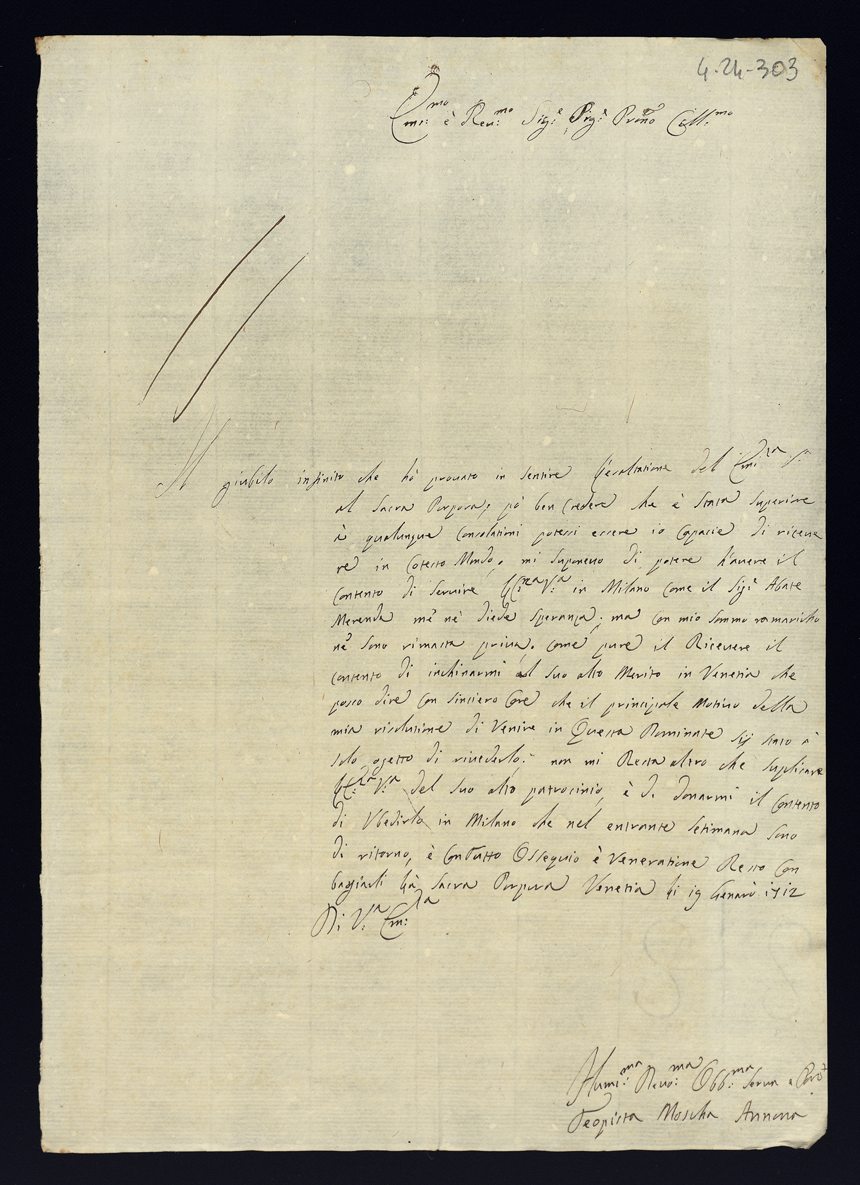 4-24-303
Em:mo è Reu:mo Sig:e Sig:e Prone Coll:mo
Il giubilo infinito che hò prouato in sentire l'esaltatione del Em:za V:a
al Sacra Porpora, pò ben Credere che è Stata Superiore
à qualunque Consolationi potessi essere io Capacie di riceue
re in Cotesto Mondo, mi Suponeuo di potere hauere il
Contento di Seruire V:a in Milano Come il Sig:e Abate
Merenda me nè diede Speranza; ma Con mio Sommo ramaricho
nè Sono rimasta priua. Come pure il Riceuere il
Contento di inchinarmi al Suo alto Merito in Venetia che
posso dire Con Sinciero Core che il principale Motiuo della
mia risolutione di Venire in Questa Dominante Sij Stato il
Solo ogetto di riuederlo: non mi Resta altro che Suplicare
V:a del Suo alto patrocinio, è di donarmi il Contento
di Vbedirlo in Milano che nel entrante Setimana Sono
di ritorno, è Con Tutto Ossequio è Veneratione Resto Con
bagiarli La Sacra Porpora Venetia li 19 Genaro 1712
Di V:a Em:za
Humi:ma Reue:ma Obb:ma Serua e
Teopista Moscha Annona